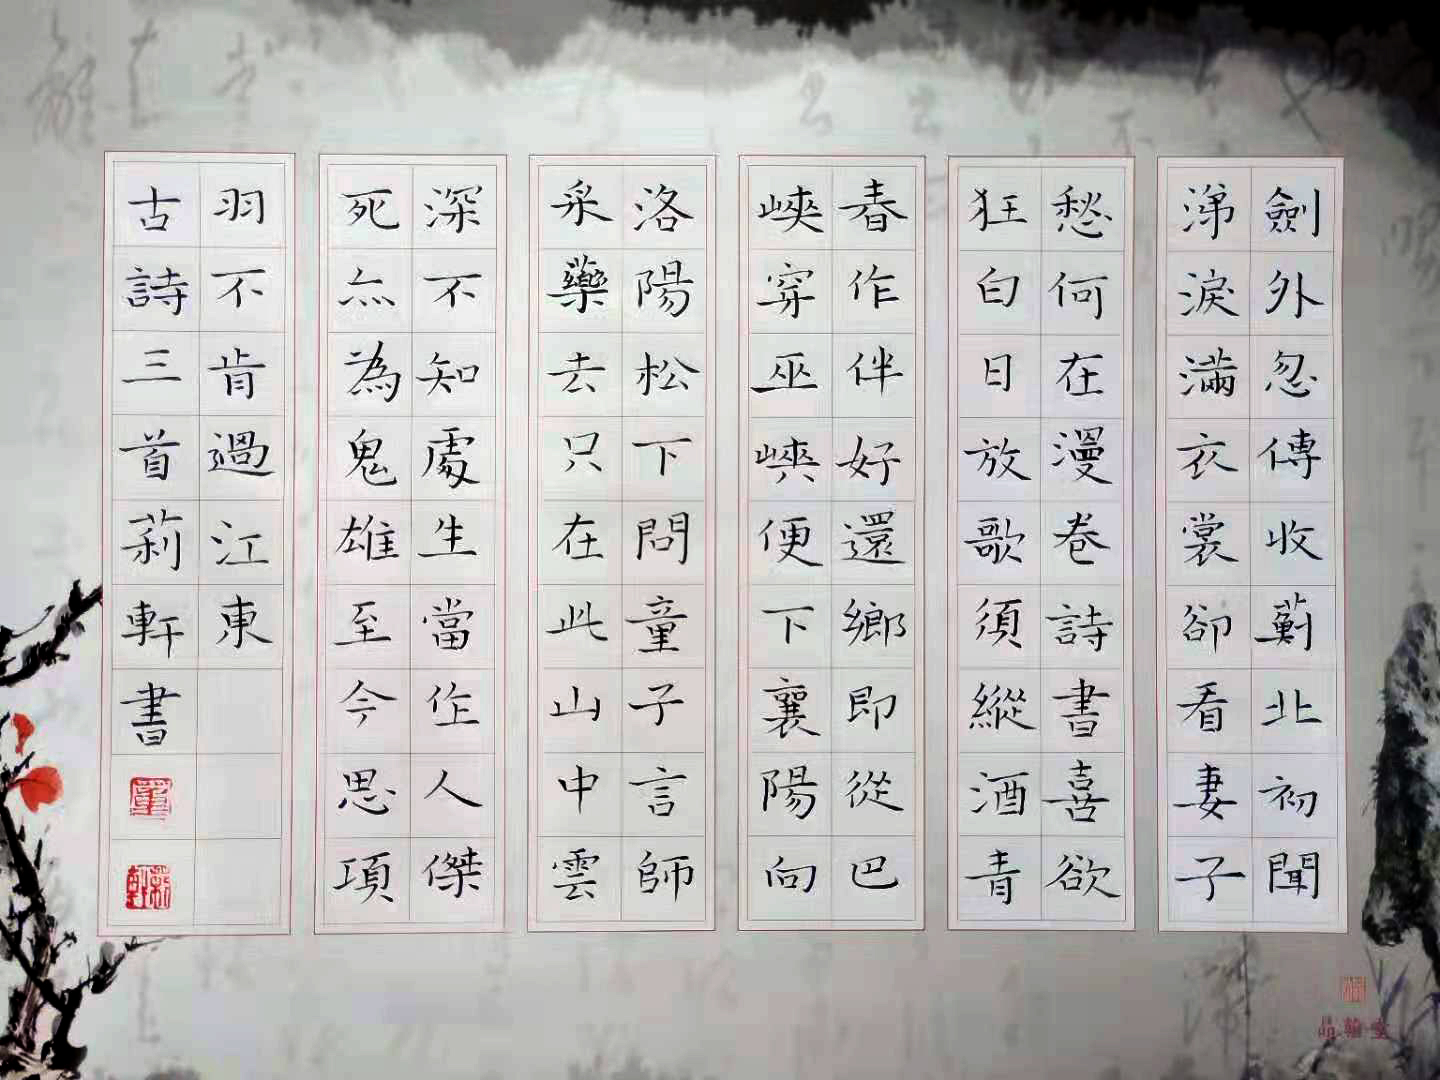 劍外忽傳收薊北初聞
涕淚滿衣裳卻看妻子
愁何在漫卷詩書喜欲
狂白日放歌須縱酒青
春作伴好還鄉即從巴
峽穿巫峽便下襄陽向
洛陽松下問童子言師
采藥去只在此山中雲
深不知處生當作人傑
死亦為鬼雄至今思項
羽不肯過江東
古詩三首莉軒書
董
品翰堂